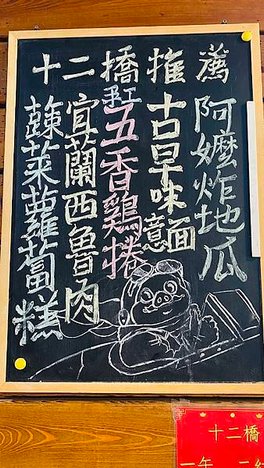 十二橋推薦
阿嬤炸地瓜
古早味意面
手工五香鷄捲
宜蘭西魯肉
菜蘿蔔糕
十二橋
一年